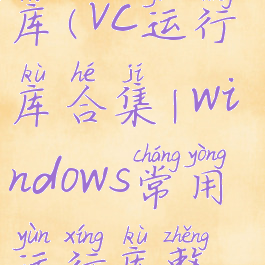 库(VC运行
kù hé jí
库合集|wi
cháng yòng
ndows常用
yùn xíng kù zhěng
运行库整